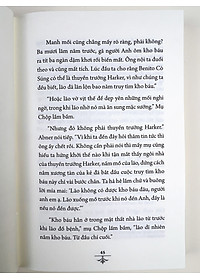 Manh mối cũng chẳng mấy rõ ràng, phải không?
Ba mươi lăm năm trước, gã người Anh ôm kho báu
ra tít ba ngàn dặm khơi rồi biến mất. Ông nội ta đuổi
theo và cũng mất tích. Lúc đầu ta cho rằng Benito Có
Súng có thể là thuyền trưởng Harker, vì như chúng ta
đều biết, lão đã lăn lộn bao năm truy tìm kho báu.
"Hoặc lão vờ vịt thế để dẹp yên những mối nghi
ngờ, trong khi lão nhớ nó mà ăn sung mặc sướng." Mụ
Chộp lẩm bẩm.
"Nhưng đó không phải thuyền trưởng Harker."
Abner nói tiếp. "Vì khi ta đến đây hỏi thăm tin tức thì
ông ấy chết rồi. Không cần phải nói thì mấy mụ cũng
hiểu ta hứng khởi thế nào khi tận mắt thấy ngôi nhà
của thuyền trưởng Harker, nhà của tên cướp biển một
mắt, và nhà của kẻ đã bắt đầu cuộc truy tìm kho báu
này chỉ vài bước chân. Ta hả hê lắm và chúng buông
lời mỉa mai: "Lão không có kho báu đâu, người anh
em ạ. Lão xuống mồ trước khi nó đến Anh, chấy là đấy
nếu nó đến được."
"Kho báu hẳn ở trong mật thất nhà lão từ trước
khi lão đổ bệnh," mụ Chộp lẩm bẩm, "lão đi nhiên
năm kho báu. Từ đầu chí cuối."
65